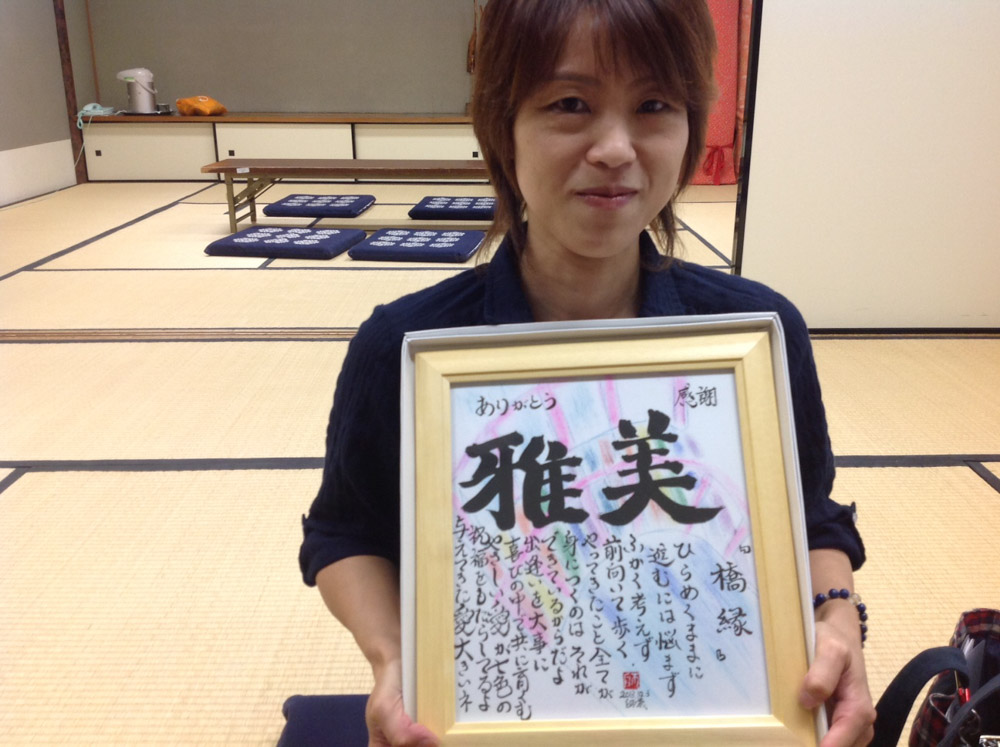 ありがとう
感謝
雅美
『橋縁』
ひらめくままに
進むには悩まず
ふかく考えず
前向いて歩く
やってきたこと全てが
身につくのはそれが
できているからだよ
出逢いを大事に
喜びの中で共に育む
やさしい愛が七色の
祝福をもたらしてるよ
与えてきた愛大きいネ